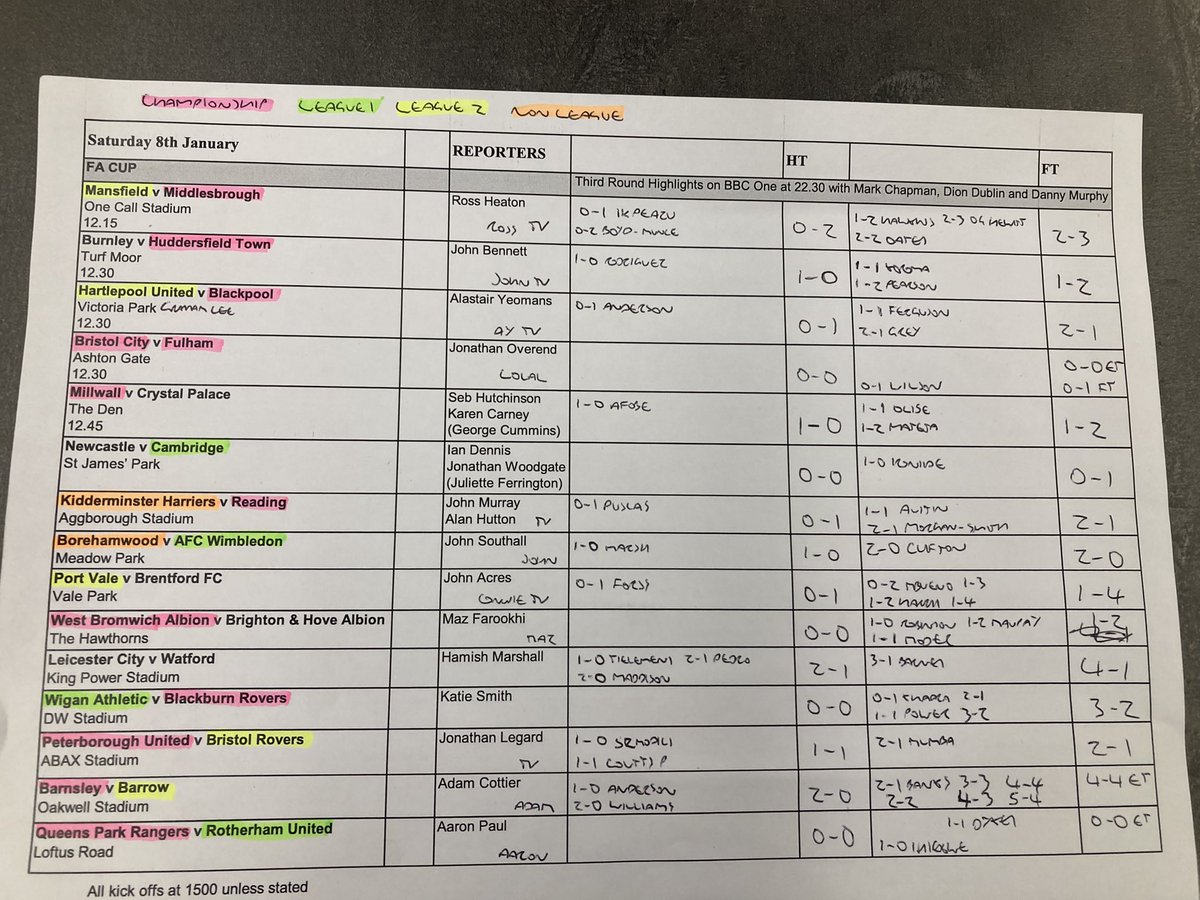 CHAMPIONSHIP LEAGUE 1 LEAGUE 2 NON LEAGUE
Saturday 8th January REPORTERS HT FT
FA CUP Third Round Highlights on BBC One at 22.30 with Mark Chapman, Dion Dublin and Danny Murphy
Mansfield v Middlesbrough Ross Heaton 0-1 IKPEAZU 1-2 HAWKINS 2-3 OG HEWITT
One Call Stadium ROSS TV 0-2 BOYD-MUNCE 0-2 2-2 OATES 2-3
12.15
Burnley v Huddersfield Town John Bennett 1-0 RODRIGUEZ 1-1 KOROMA
Turf Moor JOHN TV 1-0 1-2 PEARSON 1-2
12.30
Hartlepool United v Blackpool Alastair Yeomans 0-1 ANDERSON 1-1 FERGUSON
Victoria Park AY TV 0-1 2-1 GREY 2-1
12.30
Bristol City v Fulham Jonathan Overend
Ashton Gate LOCAL 0-0 0-0 ET
12.30 0-1 WILSON 0-1 FT
Millwall v Crystal Palace Seb Hutchinson 1-0 AFOBE 1-1 OLISE
The Den Karen Carney 1-0 1-2 MATETA 1-2
12.45 (George Cummins)
Newcastle v Cambridge Ian Dennis 1-0 IRONSIDE
St James' Park Jonathan Woodgate 0-0 0-1
(Juliette Ferrington)
Kidderminster Harriers v Reading John Murray 0-1 PUSCAS 1-1 AUSTIN
Aggborough Stadium Alan Hutton TV 0-1 2-1 MORGAN-SMITH 2-1
Borehamwood v AFC Wimbledon John Southall 1-0 MARSH 2-0 CLIFTON
Meadow Park JOHN 1-0 2-0
Port Vale v Brentford FC John Acres 0-1 FORSS 0-2 1-3
Vale Park TV 0-1 1-2 1-4 1-4
West Bromwich Albion v Brighton & Hove Albion Maz Farookhi 1-0 ROBINSON 1-2 MAUPAY 1-2
The Hawthorns MAZ 0-0 1-1 MODER
Leicester City v Watford Hamish Marshall 1-0 TIELEMENS 2-1 PEDRO 3-1 BARNES
King Power Stadium 2-0 MADDISON 2-1 4-1
Wigan Athletic v Blackburn Rovers Katie Smith 0-1 2-1
DW Stadium 0-0 1-1 POWER 3-2 3-2
Peterborough United v Bristol Rovers Jonathan Legard 1-0 SZMODICS 2-1 MUMBA
ABAX Stadium TV 1-1 COUTTS P 1-1 2-1
Barnsley v Barrow Adam Cottier 1-0 ANDERSON 2-1 BANKS 3-3 4-4 4-4 ET
Oakwell Stadium ADAM 2-0 WILLIAMS 2-0 2-2 4-3 5-4
Queens Park Rangers v Rotherham United Aaron Paul 1-1 0-0 ET
Loftus Road AARON 0-0 1-0
All kick offs at 1500 unless stated